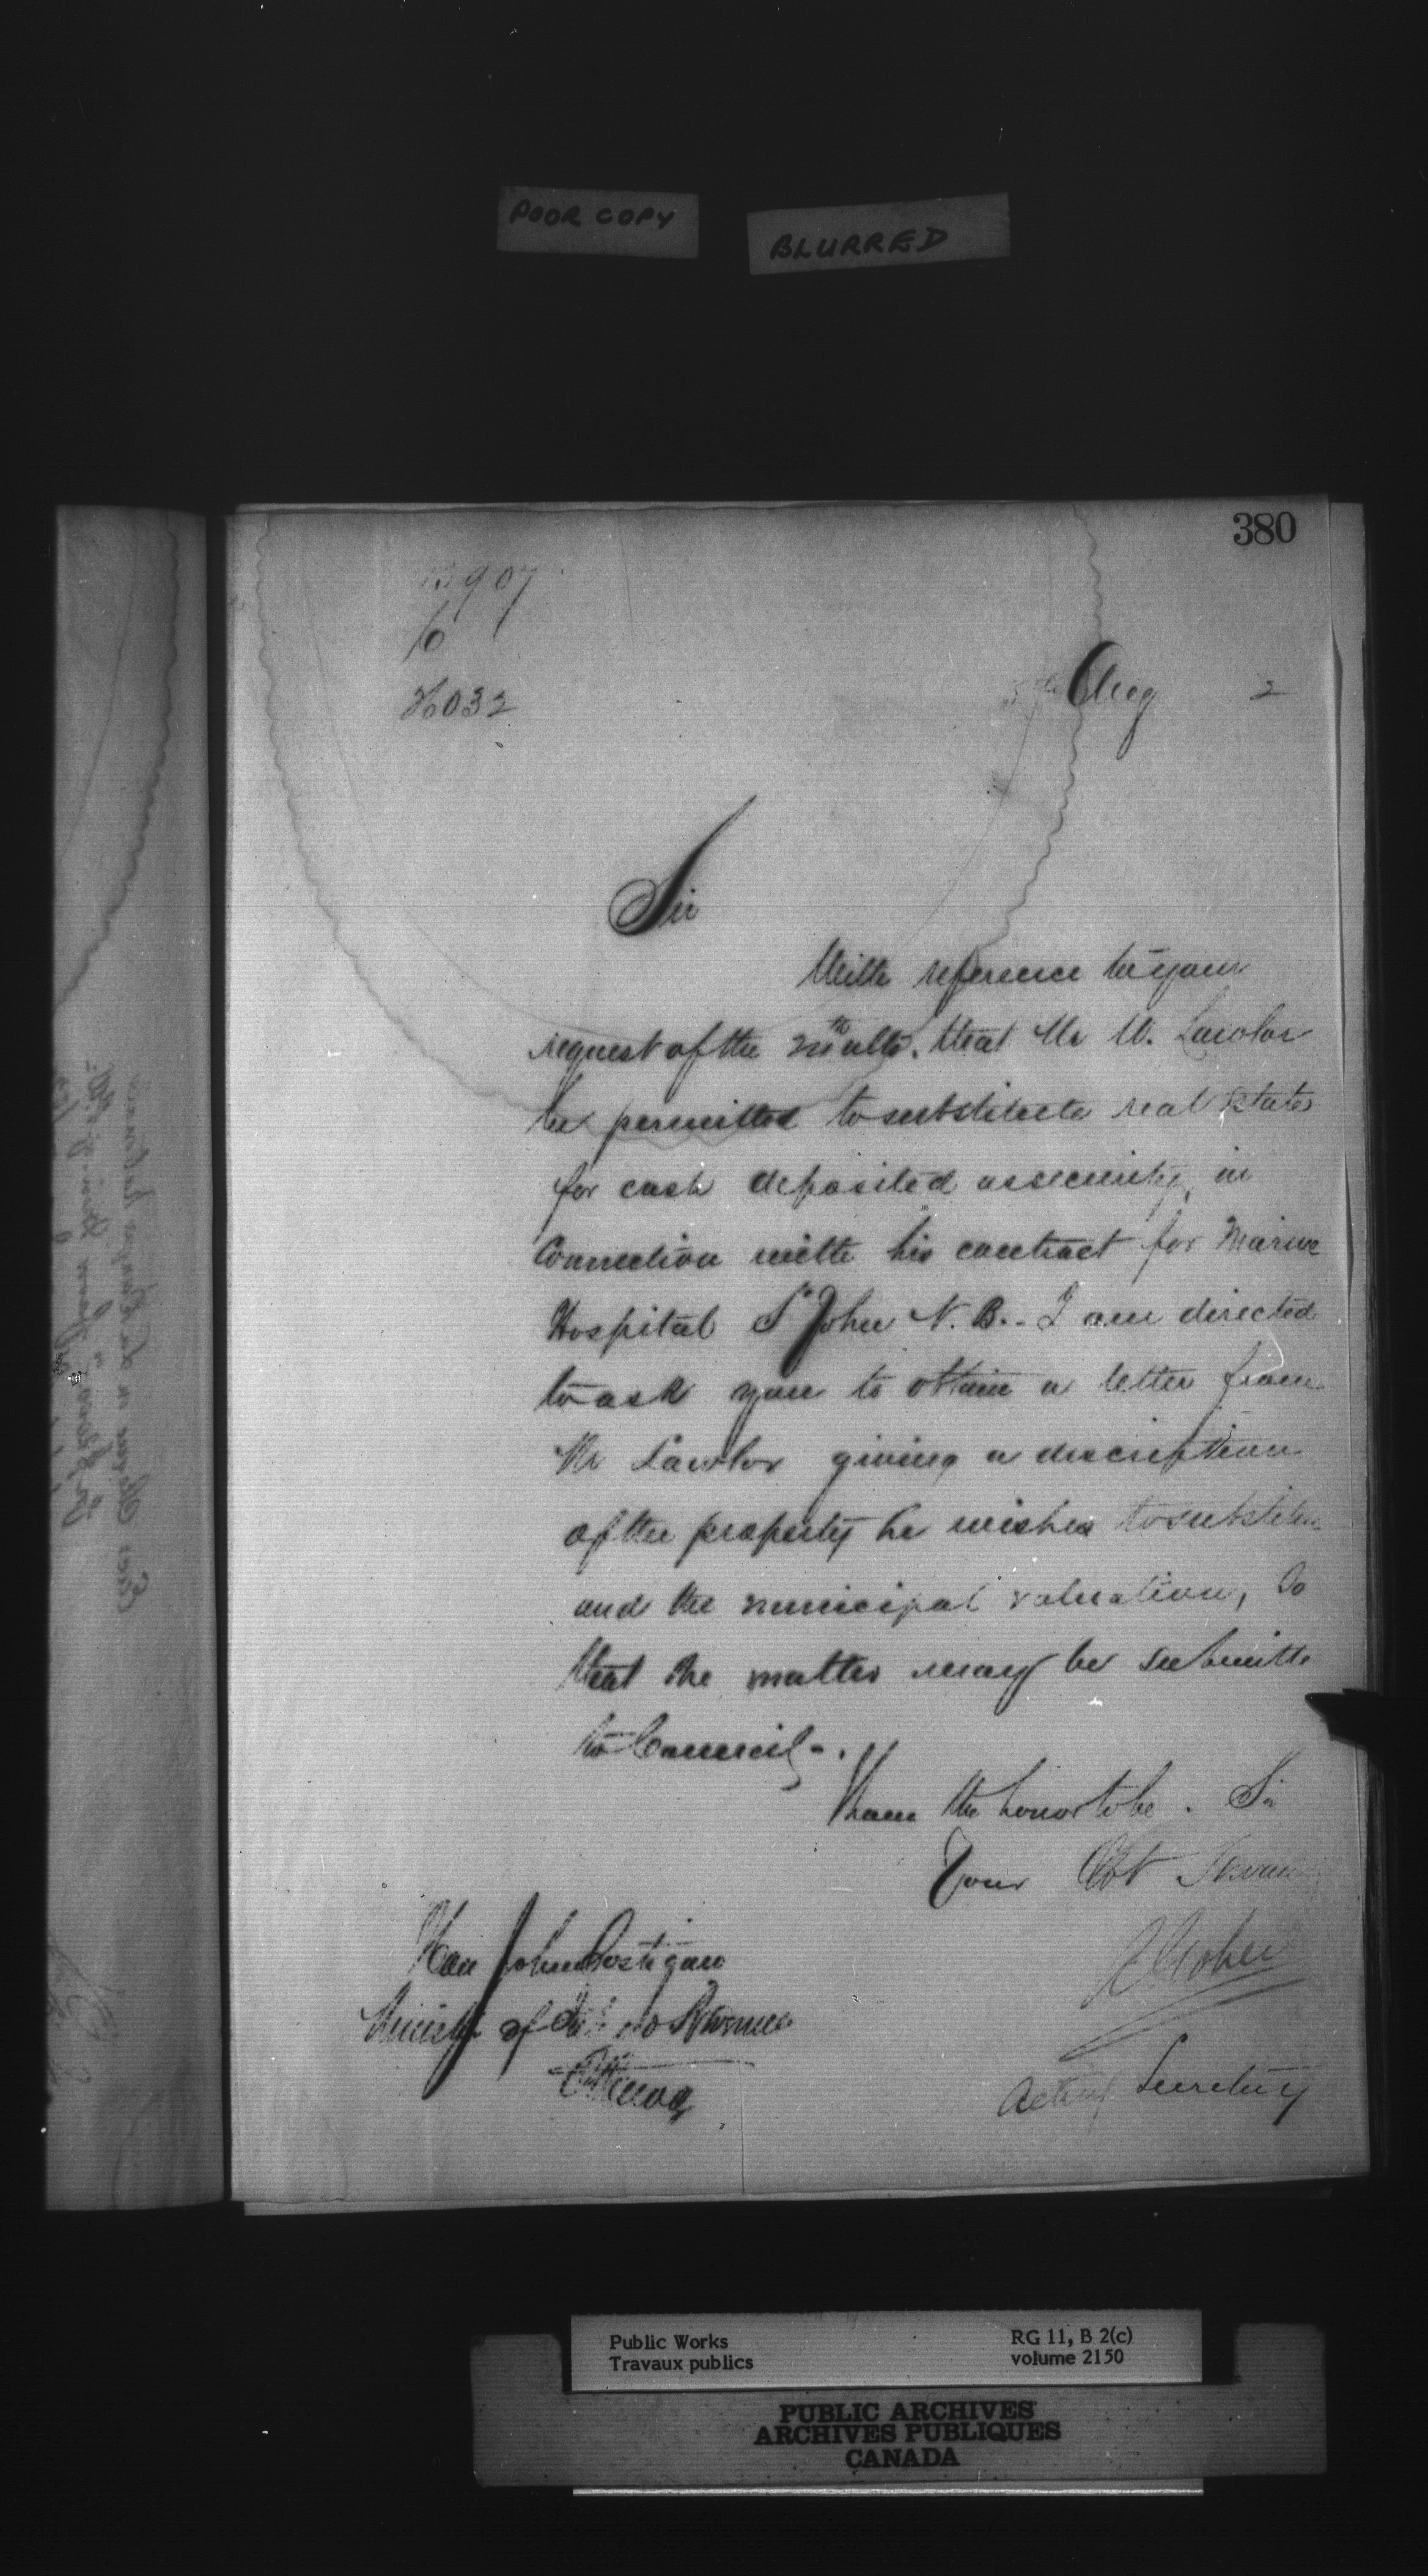 POOR COPY
BLURRED
380
907
26032
Aug 2
Sir
With reference to your
request of the ulto. that Mr W. Lawlor
be permitted to substitute real estate
for cash deposited as security, in
Connection with his contract for Marine
Hospital St John N. B. - I am directed
to ask you to obtain a letter from
Mr Lawlor giving a description
of the property he wishes to substitu
and the municipal valuation, So
that the matter may be submitte
to Council - .
I have the honor to be . Sir
Your Obt Servan
Hon John Costigan
Minister of Revenue
Ottawa
Acting Secretary
Public Works
Travaux publics
RG 11, B 2(c)
volume 2150
PUBLIC ARCHIVES
ARCHIVES PUBLIQUES
CANADA